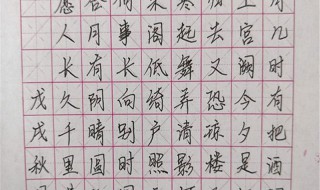 几时有把酒
宫阙今夕是
去又恐琼楼
起舞弄清影
阁低绮户照
事长向别时
月有阴晴圆
愿人长久千里
戊戌秋